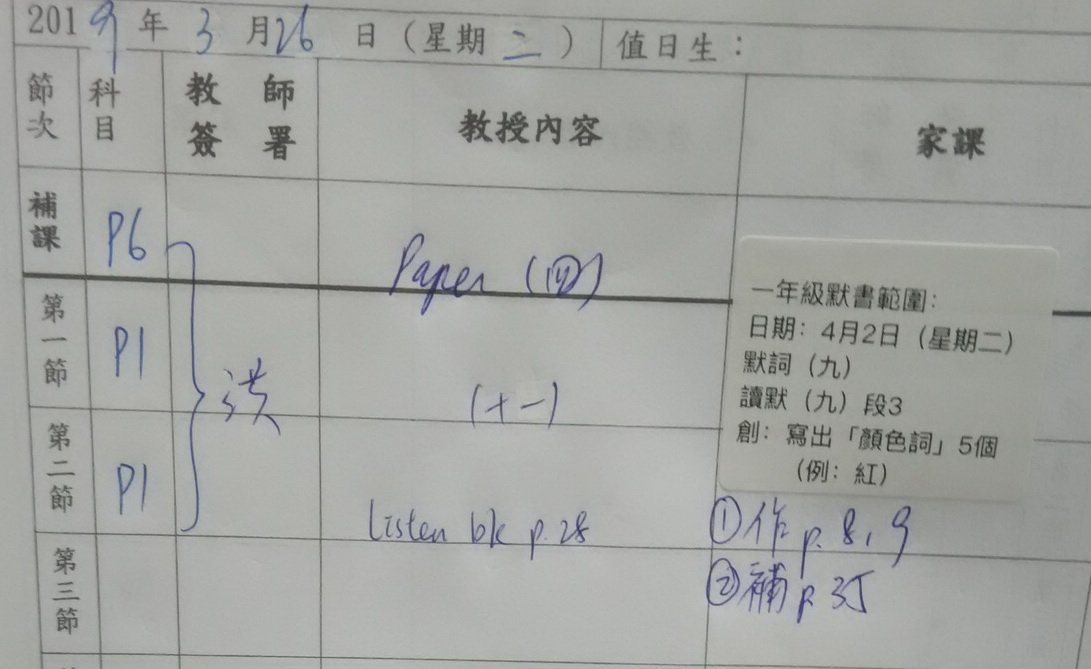 2019年3月26日（星期二）值日生：
節次 科目 教師簽署 教授內容 家課
補課 P6 Paper (四)
第一節 P1 洪 (十一)
第二節 P1 Listen bk p.28
第三節
一年級默書範圍：
日期：4月2日（星期二）
默詞（九）
讀默（九）段3
創：寫出「顏色詞」5個
（例：紅）
①作p.8,9
②補p.35